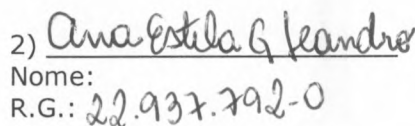 2) Ana Estela G Leandro
Nome:
R.G.: 22.937.792-0